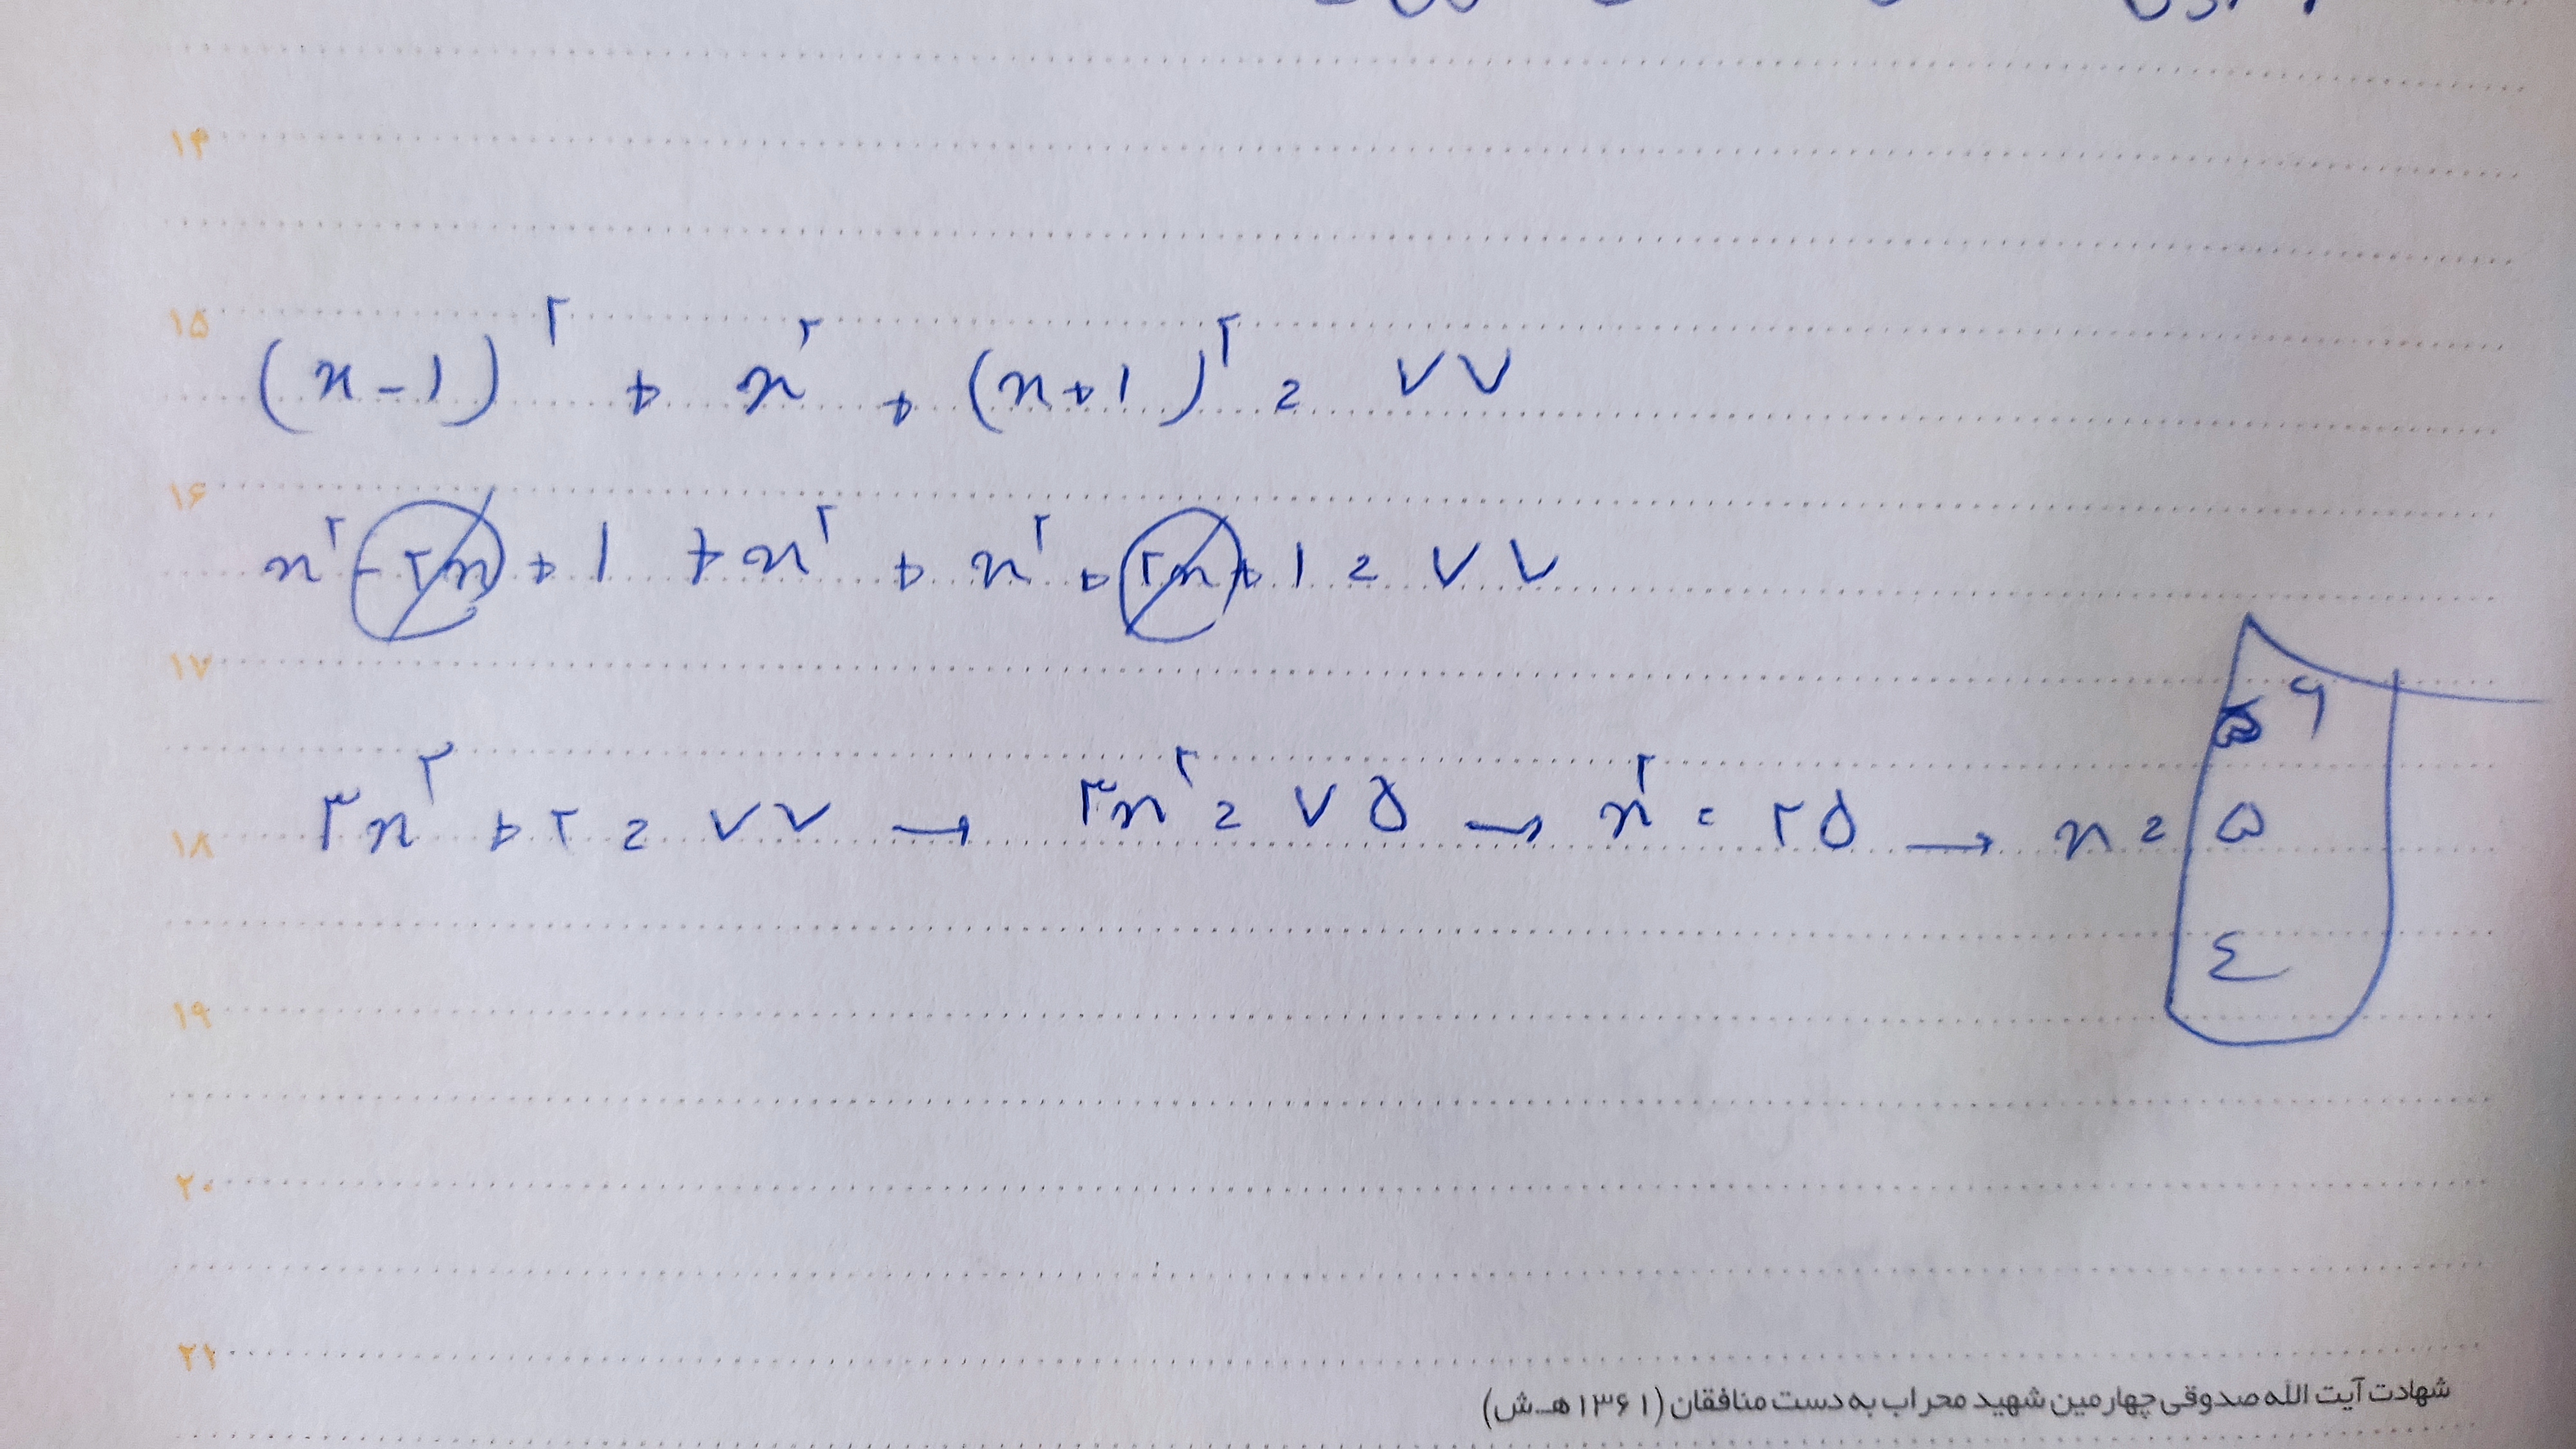 ۱۴
۱۵
(x-۱)^۲ + x^۲ + (x+۱)^۲ = ۷۷
۱۶
x^۲ - ۲x + ۱ + x^۲ + x^۲ + ۲x + ۱ = ۷۷
۱۷
۶
۳x^۲ + ۲ = ۷۷ → ۳x^۲ = ۷۵ → x^۲ = ۲۵ → x = ۵
۱۸
۴
۱۹
۲۰
۲۱
شهادت آیت الله صدوقی چهارمین شهید محراب به دست منافقان (۱۳۶۱ هـ.ش)